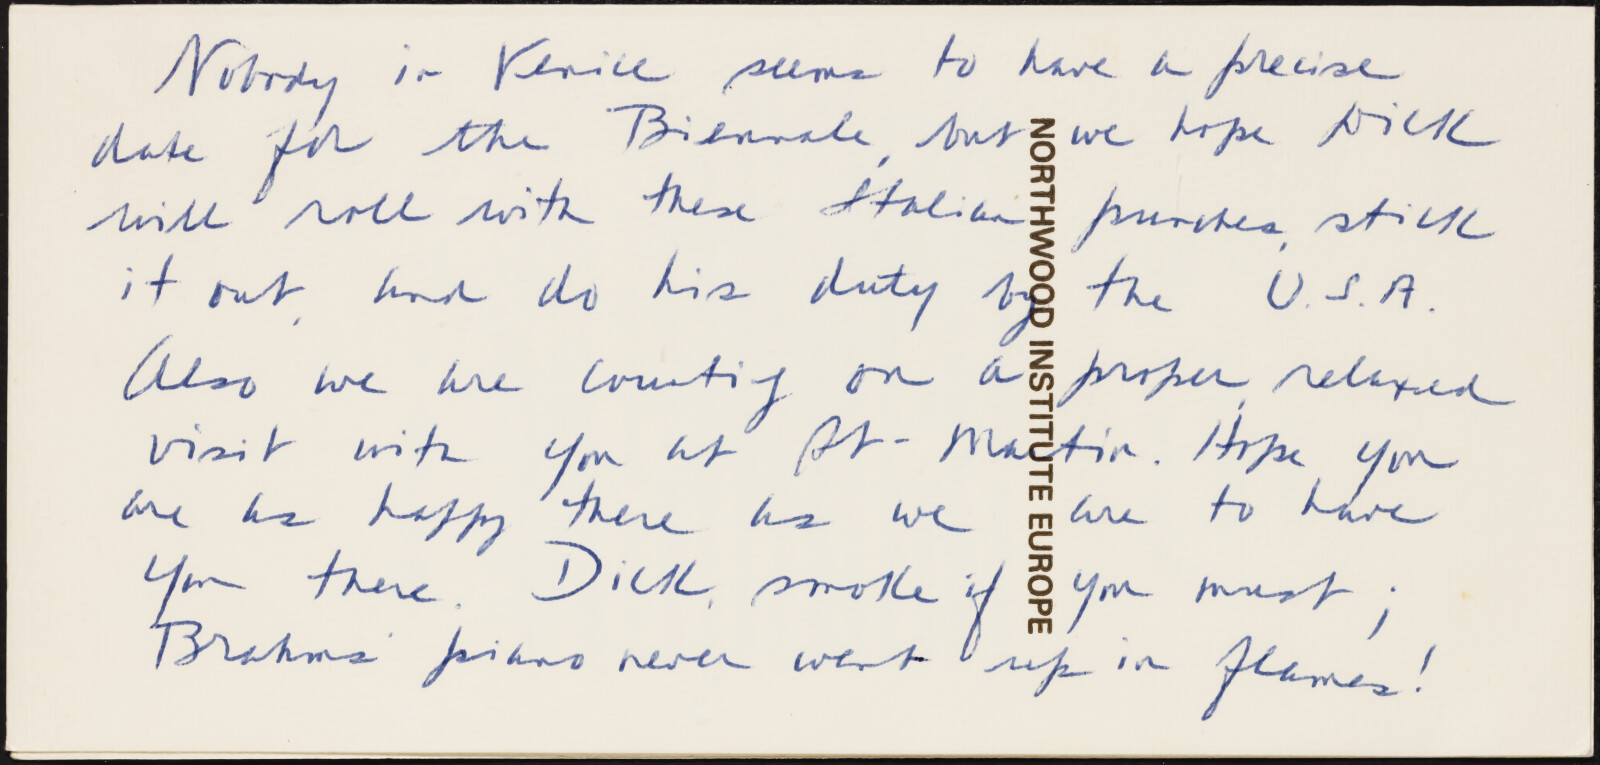 Nobody in Venice seems to have a precise
date for the Biennale, but we hope Dick
will roll with these Italian punches, stick
it out, and do his duty by the U.S.A.
Also we are counting on a proper, relaxed
visit with you at St-Martin. Hope you
are as happy there as we are to have
you there. Dick, smoke if you must;
Brahms' piano never went up in flames!
NORTHWOOD INSTITUTE EUROPE